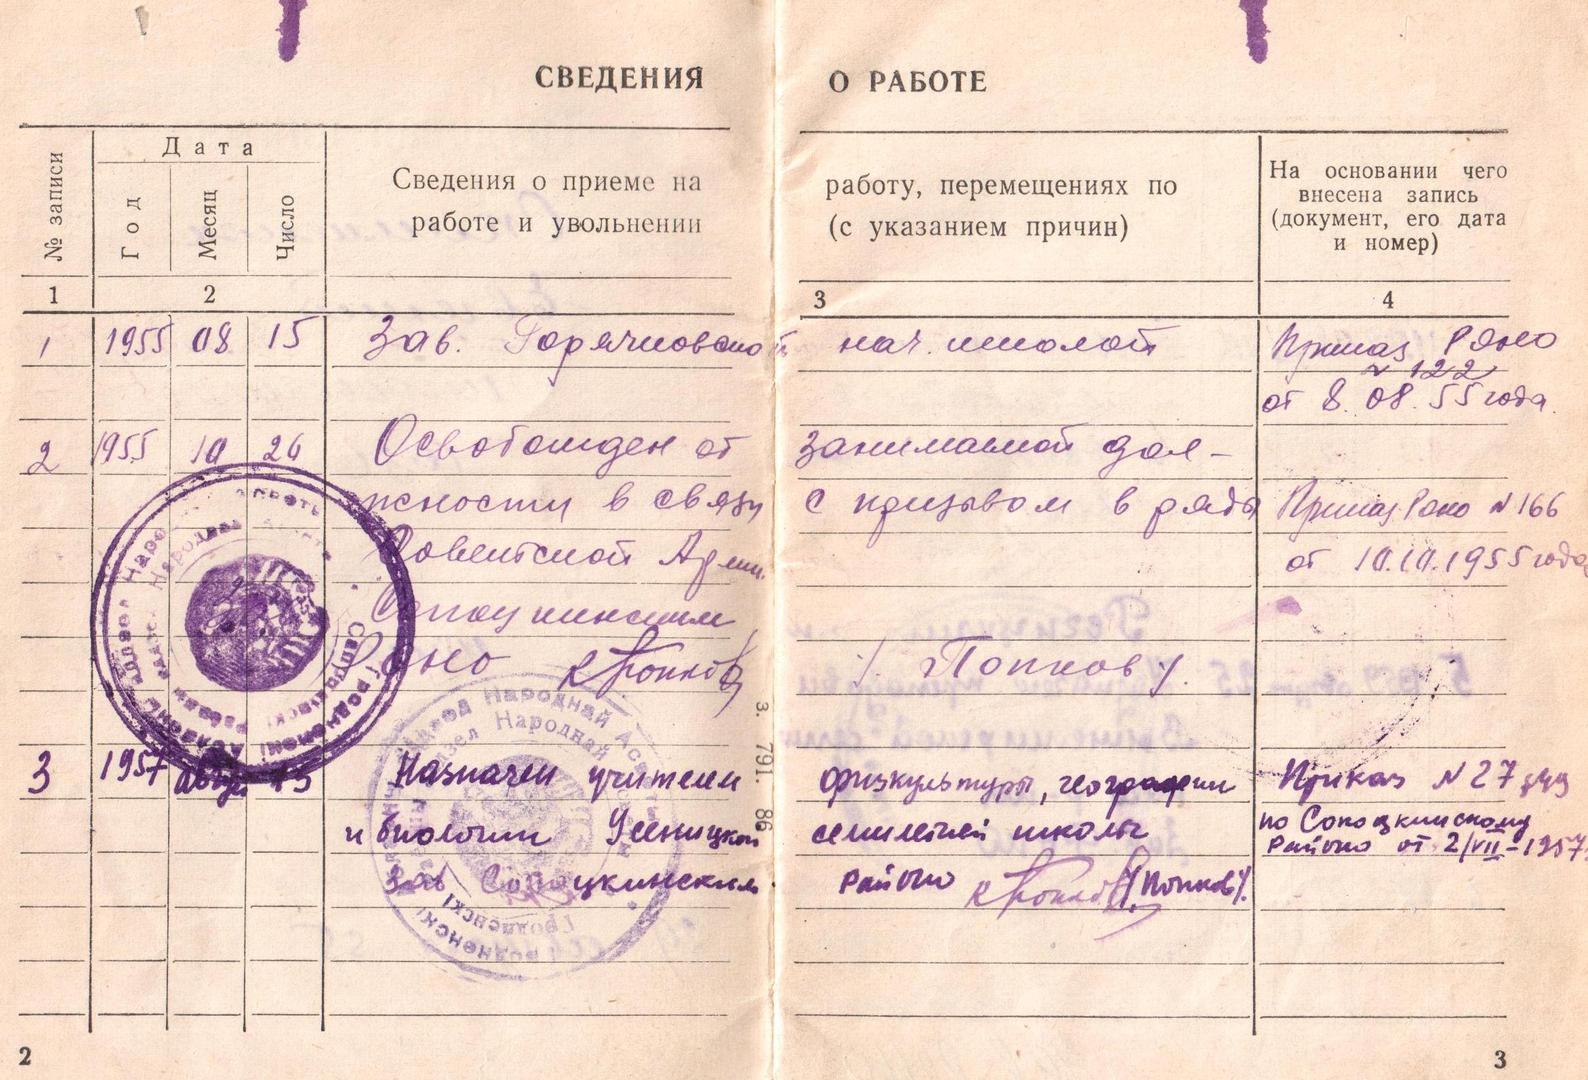 СВЕДЕНИЯ О РАБОТЕ
№ записи
Дата
Год
Месяц
Число
Сведения о приеме на работу, перемещениях по
работе и увольнении (с указанием причин)
На основании чего
внесена запись
(документ, его дата
и номер)
1 2 3 4
1 1955 08 15 Зав. нач. школой Приказ Роно
№ 122
от 8.08.55 года.
2 1955 10 Освобожден от занимаемой дол-
жности в связи с призывом в ряды Приказ Роно N 166
Советской Арми. от 10.10.1955 года
Роно /Попков/.
3. 791. 86
3 1957 август Назначен учителем физкультуры, географии Приказ N 27
и биологии семилетней школы по Сопоцкинскому
Районо от 2/VII-1957
Зав Сопоцкинским Районо /Попков/.
Народнай
Народнай
2
3